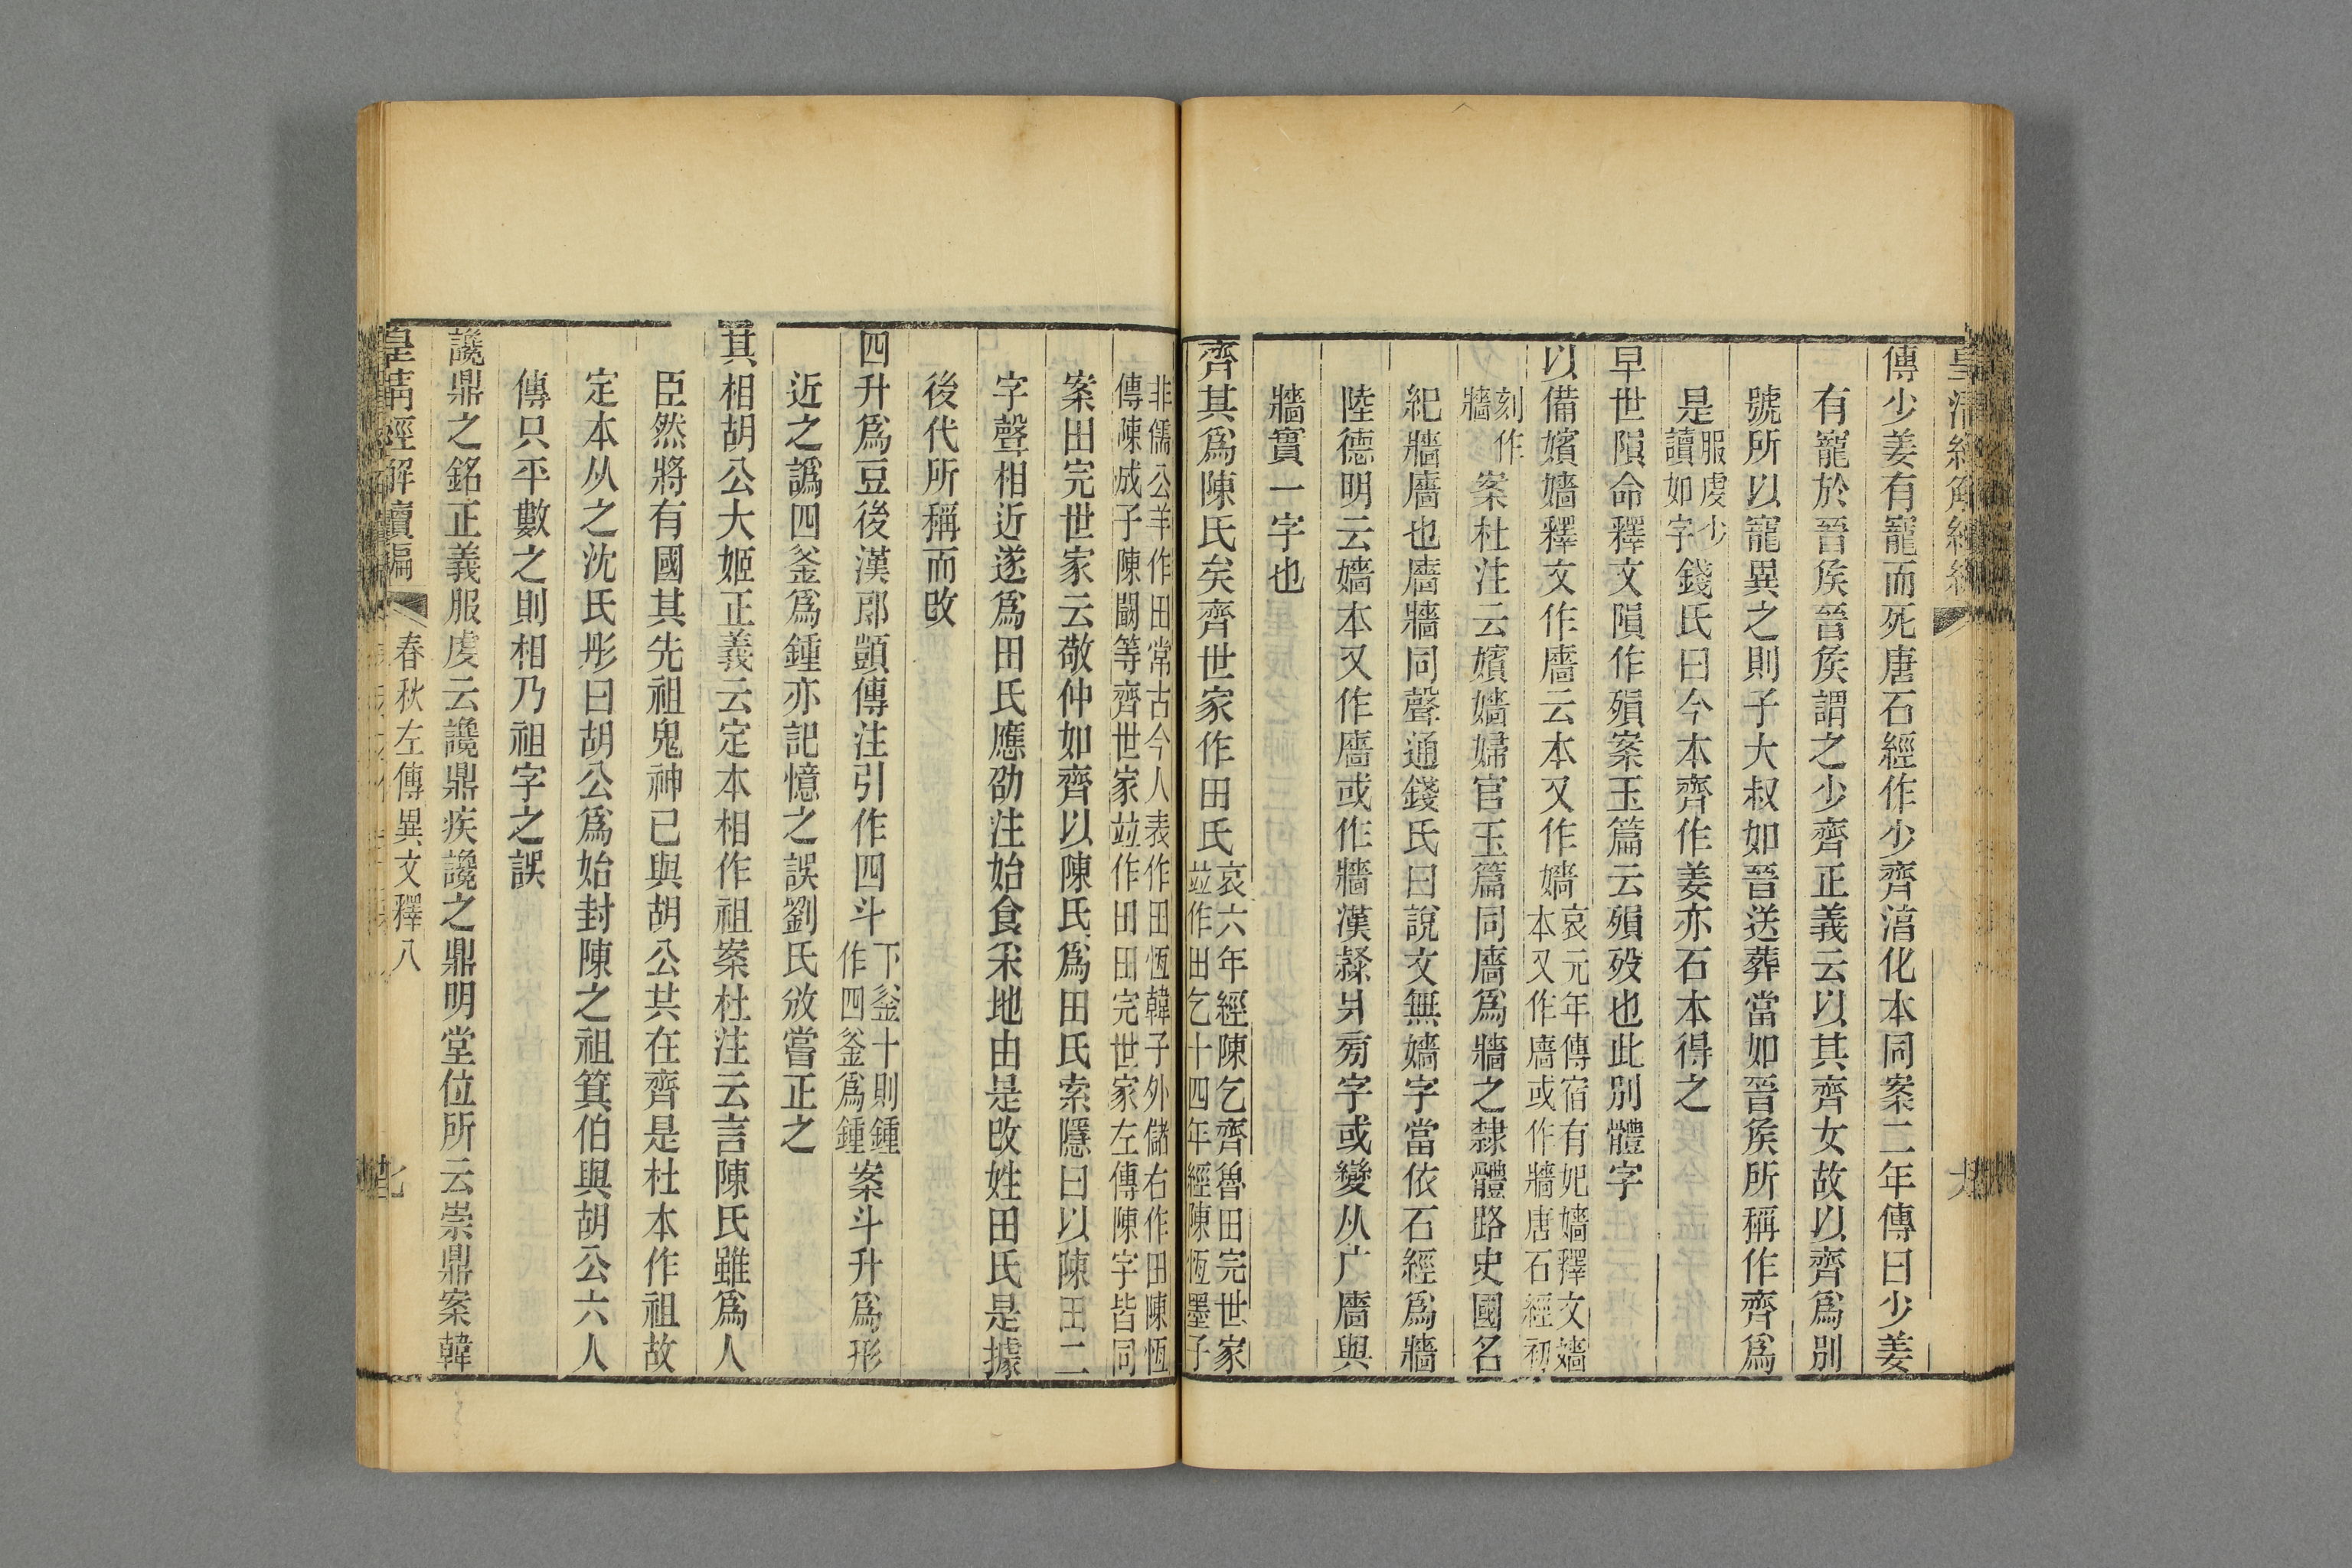 傳少姜有寵而死唐石經作少齊湻化本同案二年傳曰少姜
有寵於晉矦晉矦謂之少齊正義云以其齊女故以齊爲別
號所以寵異之則子大叔如晉送葬當如晉矦所稱作齊爲
是服虔少讀如字錢氏曰今本齊作姜亦石本得之
早世隕命釋文隕作殞案玉篇云殞歿也此別體字
以備嬪嬙釋文作廧云本又作嬙哀元年傳宿有妃嬙釋文嬙本又作廧或作牆唐石經初
刻作牆案杜注云嬪嬙婦官玉篇同廧爲牆之隸體路史國名
紀牆廧也廧牆同聲通錢氏曰說文無嬙字當依石經爲牆
陸德明云嬙本又作廧或作牆漢隸爿旁字或變从广廧與
牆實一字也
齊其爲陳氏矣齊世家作田氏哀六年經陳乞齊魯田完世家竝作田乞十四年經陳恆墨子
非儒公羊作田常古今人表作田恆韓子外儲右作田陳恆傳陳成子陳闞等齊世家竝作田田完世家左傳陳字皆同
案田完世家云敬仲如齊以陳氏爲田氏索隱曰以陳田二
字聲相近遂爲田氏應劭注始食采地由是改姓田氏是據
後代所稱而改
四升爲豆後漢郎顗傳注引作四斗下釜十則鍾作四釜爲鍾案斗升爲形
近之譌四釜爲鍾亦記憶之誤劉氏攽嘗正之
其相胡公大姬正義云定本相作祖案杜注云言陳氏雖爲人
臣然將有國其先祖鬼神已與胡公共在齊是杜本作祖故
定本从之沈氏彤曰胡公爲始封陳之祖箕伯與胡公六人
傳只平數之則相乃祖字之誤
讒鼎之銘正義服虔云讒鼎疾讒之鼎明堂位所云崇鼎案韓
皇清經解續編 春秋左傳異文釋八